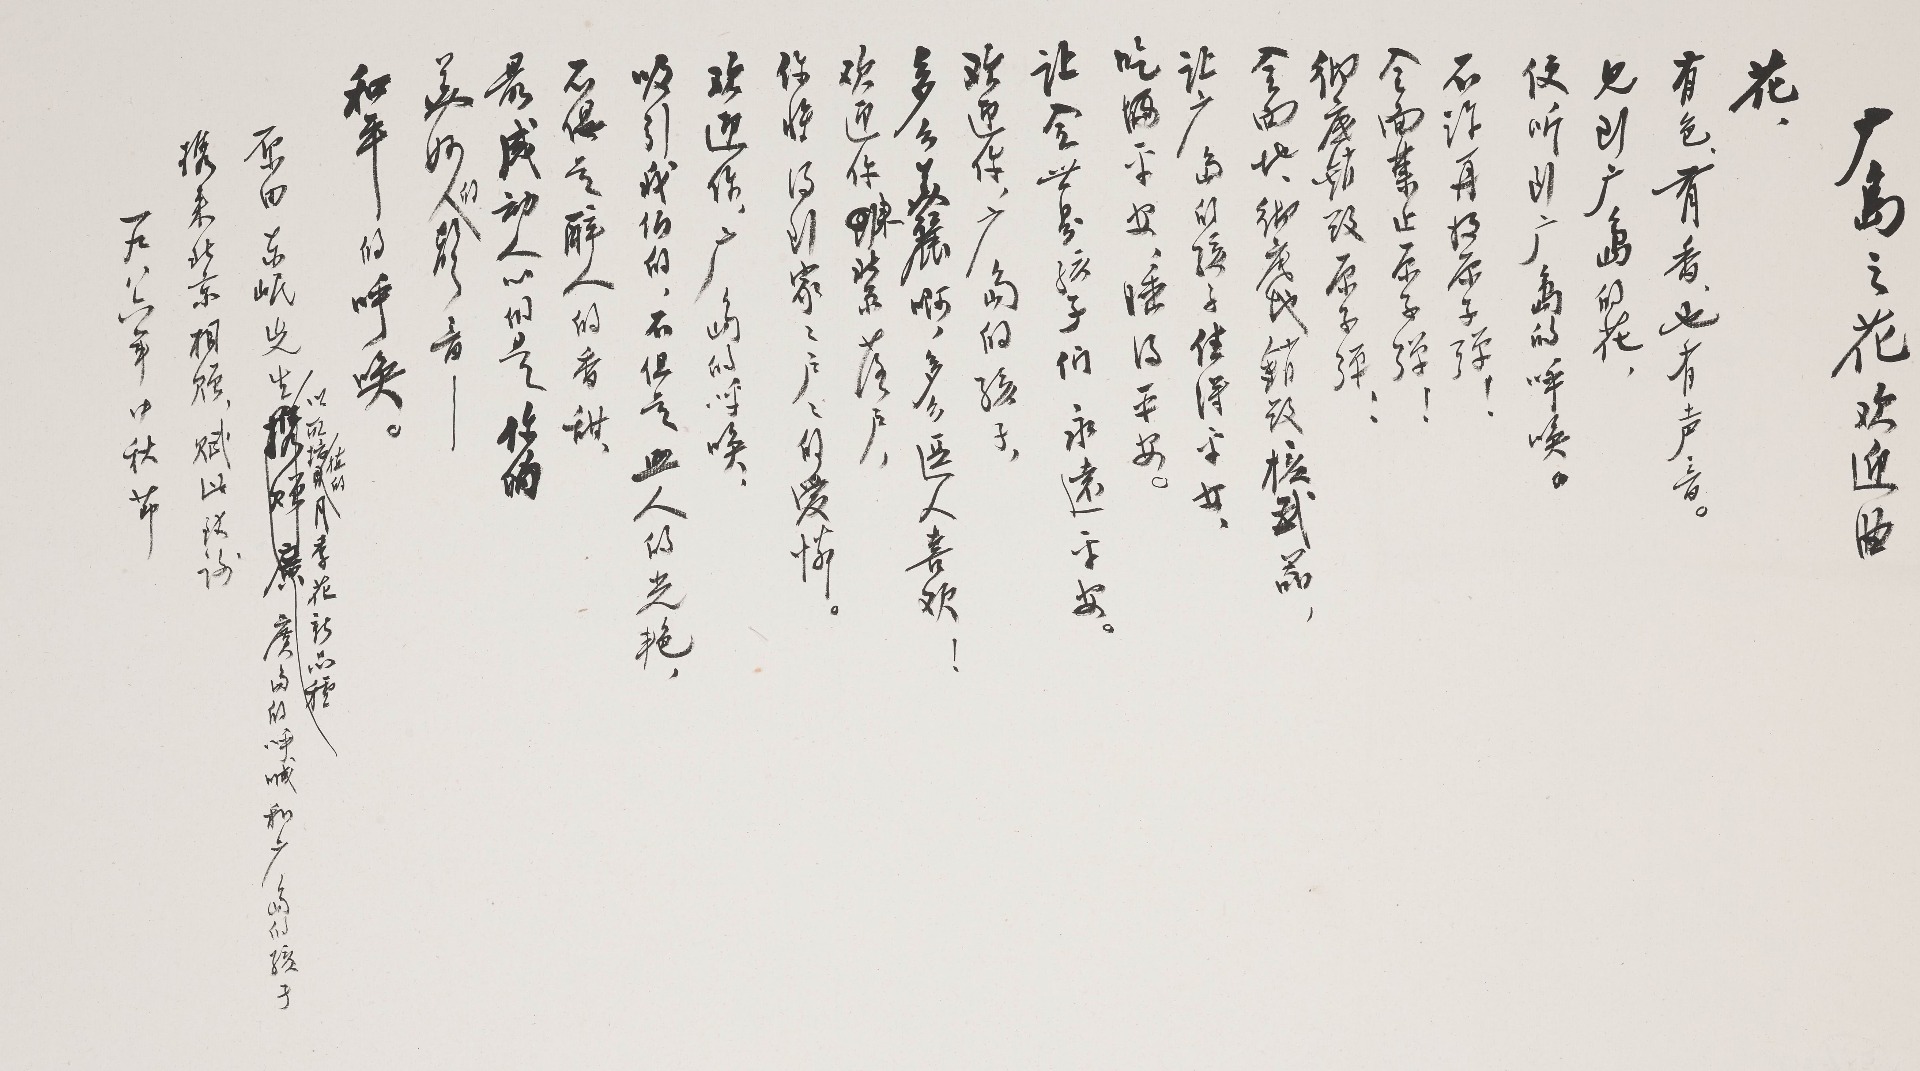 广岛之花欢迎曲
花、
有色、有香、也有声音。
见到广岛的花，
便听到广岛的呼唤。
不许再投原子弹！
全面禁止原子弹！
彻底销毁原子弹！
全面地、彻底地销毁核武器，
让广岛的孩子住得平安、
吃得平安、睡得平安。
让全世界孩子们永远平安。
欢迎你，广岛的孩子，
多么美丽啊，多么逗人喜欢！
欢迎你来北京落户，
你将得到家家户户的爱怜。
欢迎你，广岛的呼唤、
吸引我们的，不但是照人的光艳，
不仅是醉人的香甜、
最感动人心的是你的
美妙的人类之音——
和平的呼唤。
原田东岷先生以所培植的月季花新品種廣島的呼喊和广岛的孩子
携来北京相赠，赋此致谢
一九八六年中秋节